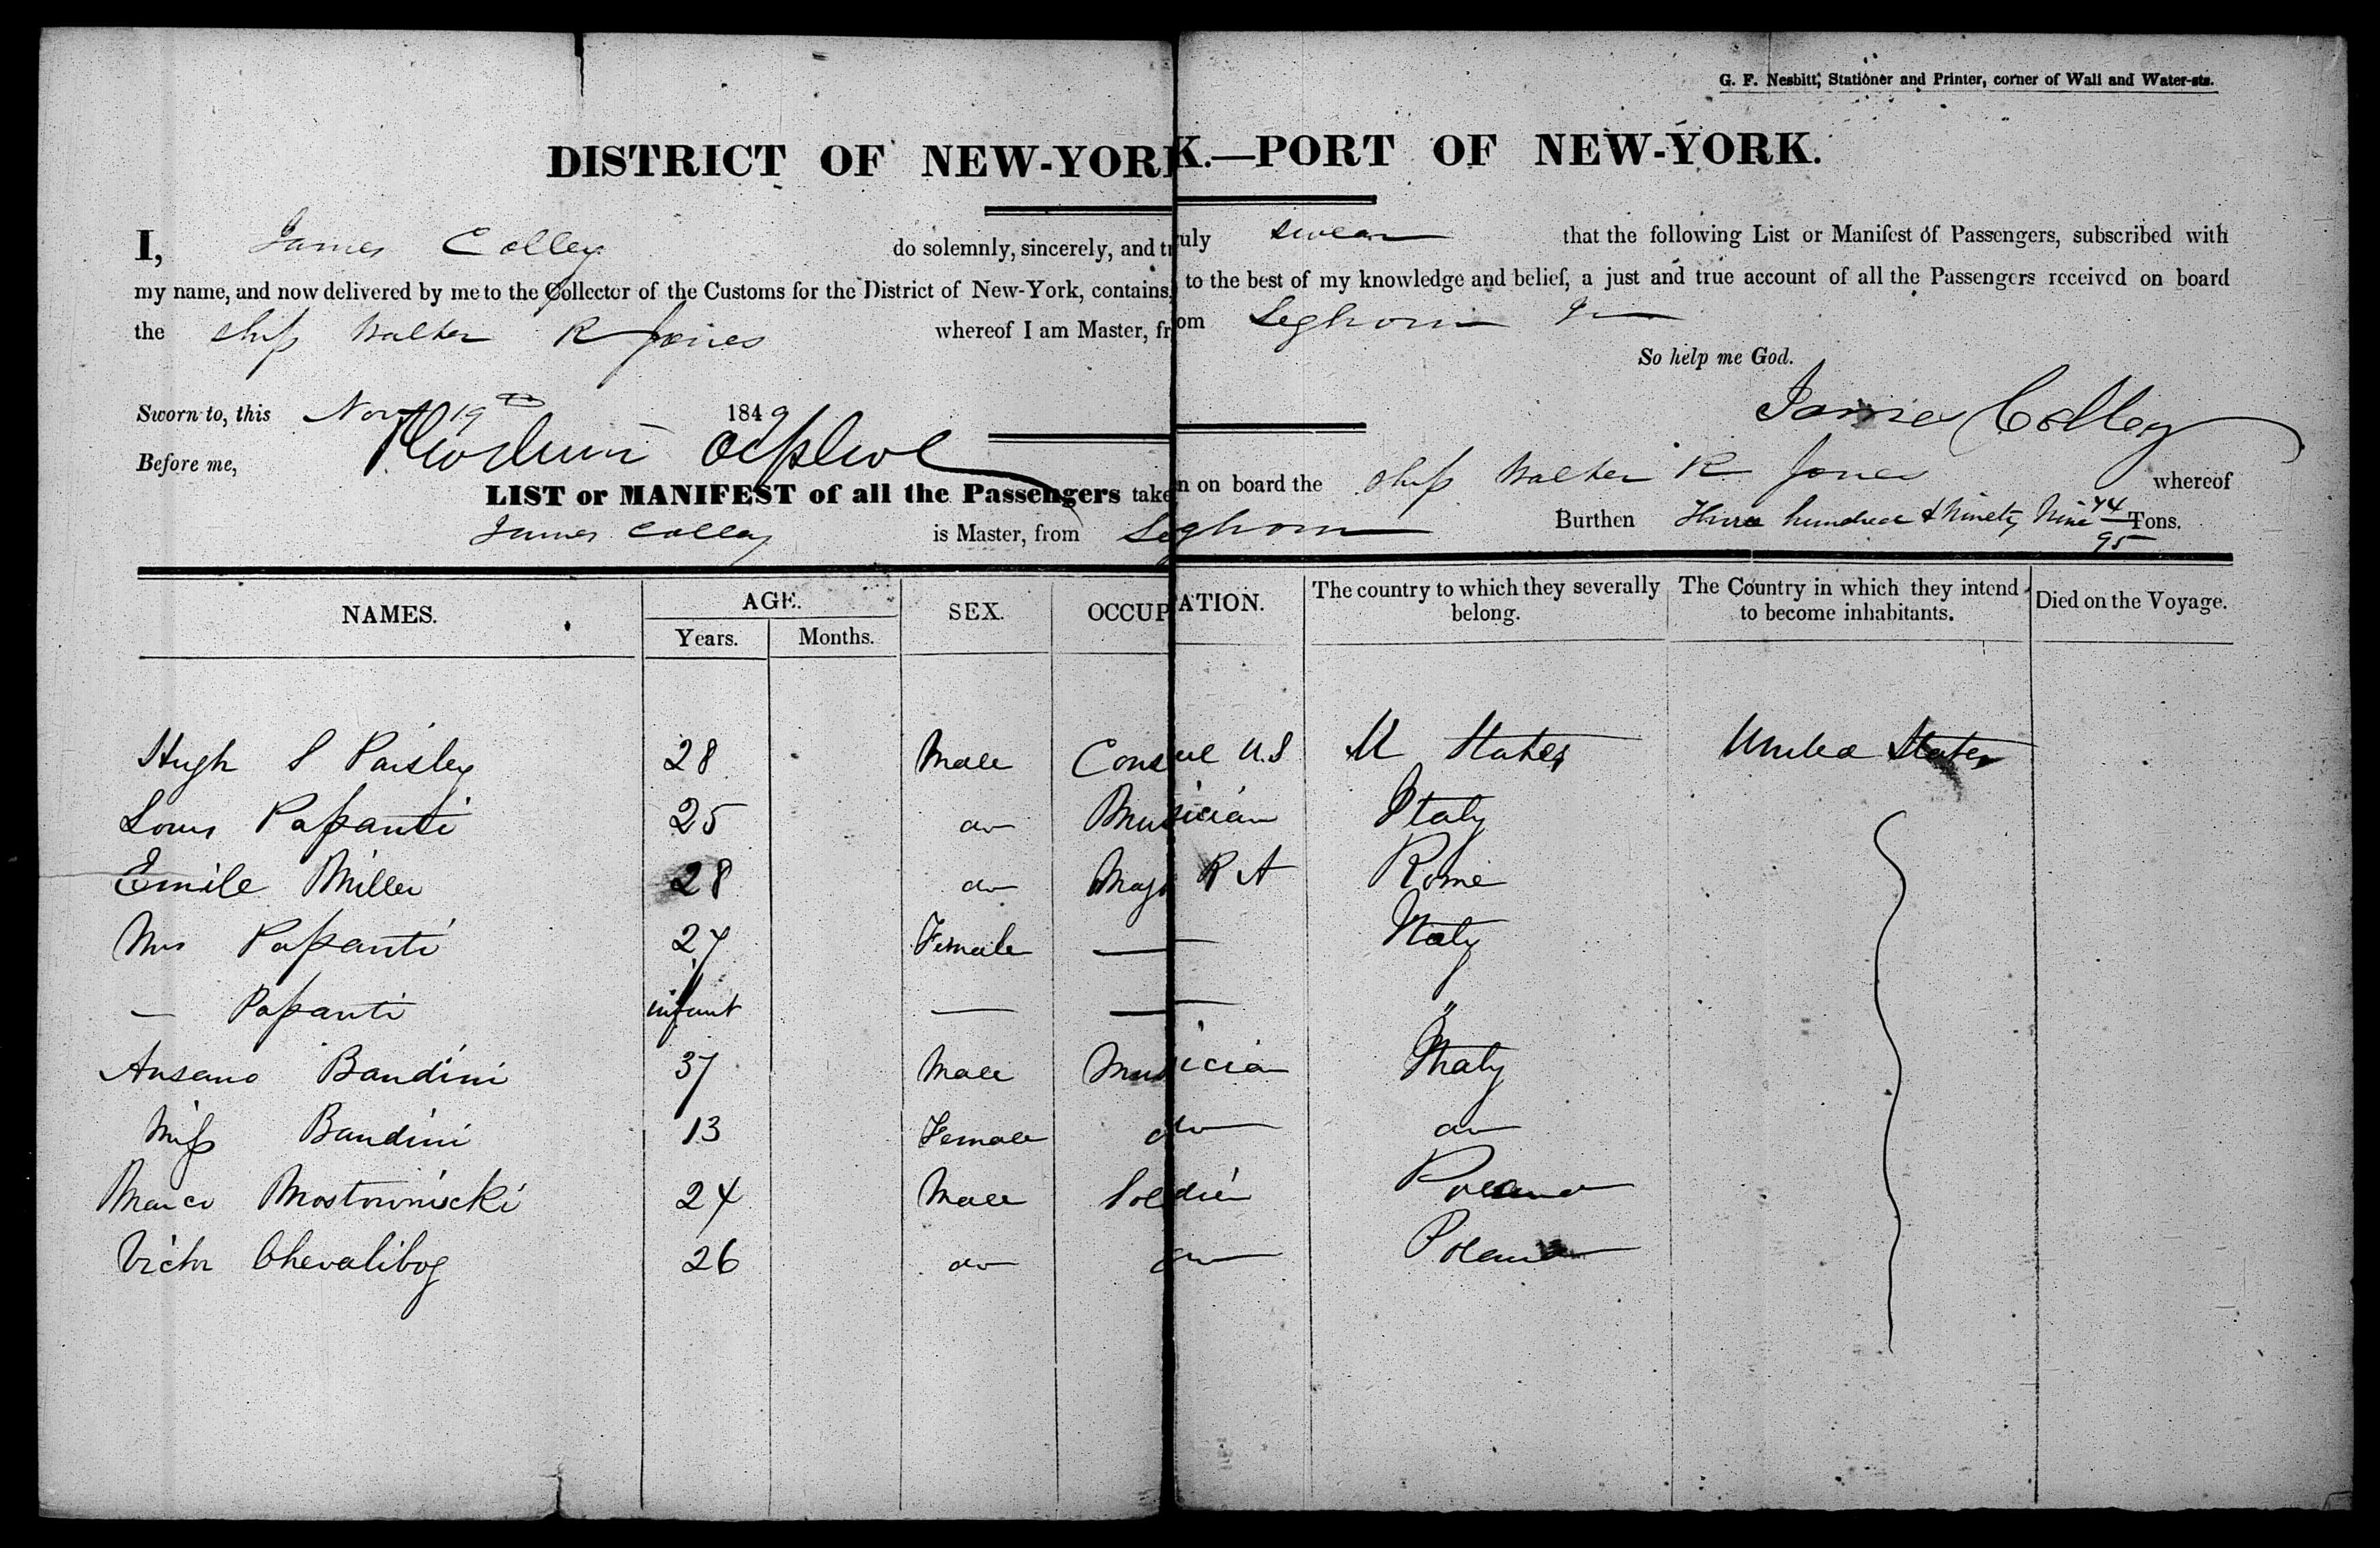 G. F. Nesbitt, Stationer and Printer, corner of Wall and Water-sts.
DISTRICT OF NEW-YORK.—PORT OF NEW-YORK.
I, James Colley do solemnly, sincerely, and truly swear that the following List or Manifest of Passengers, subscribed with
my name, and now delivered by me to the Collector of the Customs for the District of New-York, contains, to the best of my knowledge and belief, a just and true account of all the Passengers received on board
the Ship Walter R Jones whereof I am Master, from Leghorn
So help me God.
Sworn to, this Nov 19th 1849 James Colley
Before me,
LIST or MANIFEST of all the Passengers taken on board the Ship Walter R Jones whereof
James Colley is Master, from Leghorn Burthen Three hundred & Ninety Nine 44/95 Tons.
NAMES. AGE. SEX. OCCUPATION. The country to which they severally belong. The Country in which they intend to become inhabitants. Died on the Voyage.
Years. Months.
Hugh S Paisley 28 Male Consul U.S U States United States
Louis Papanti 25 do Musician Italy
Emile Miller 28 do R A Rome
Mrs Papanti 27 Female — Italy
— Papanti infant — — "
Ansano Bandini 37 Male Musician Italy
Miss Bandini 13 Female do do
Marco Mostowniscki 24 Male Soldier Poland
Victor Chevalibog 26 do do Poland